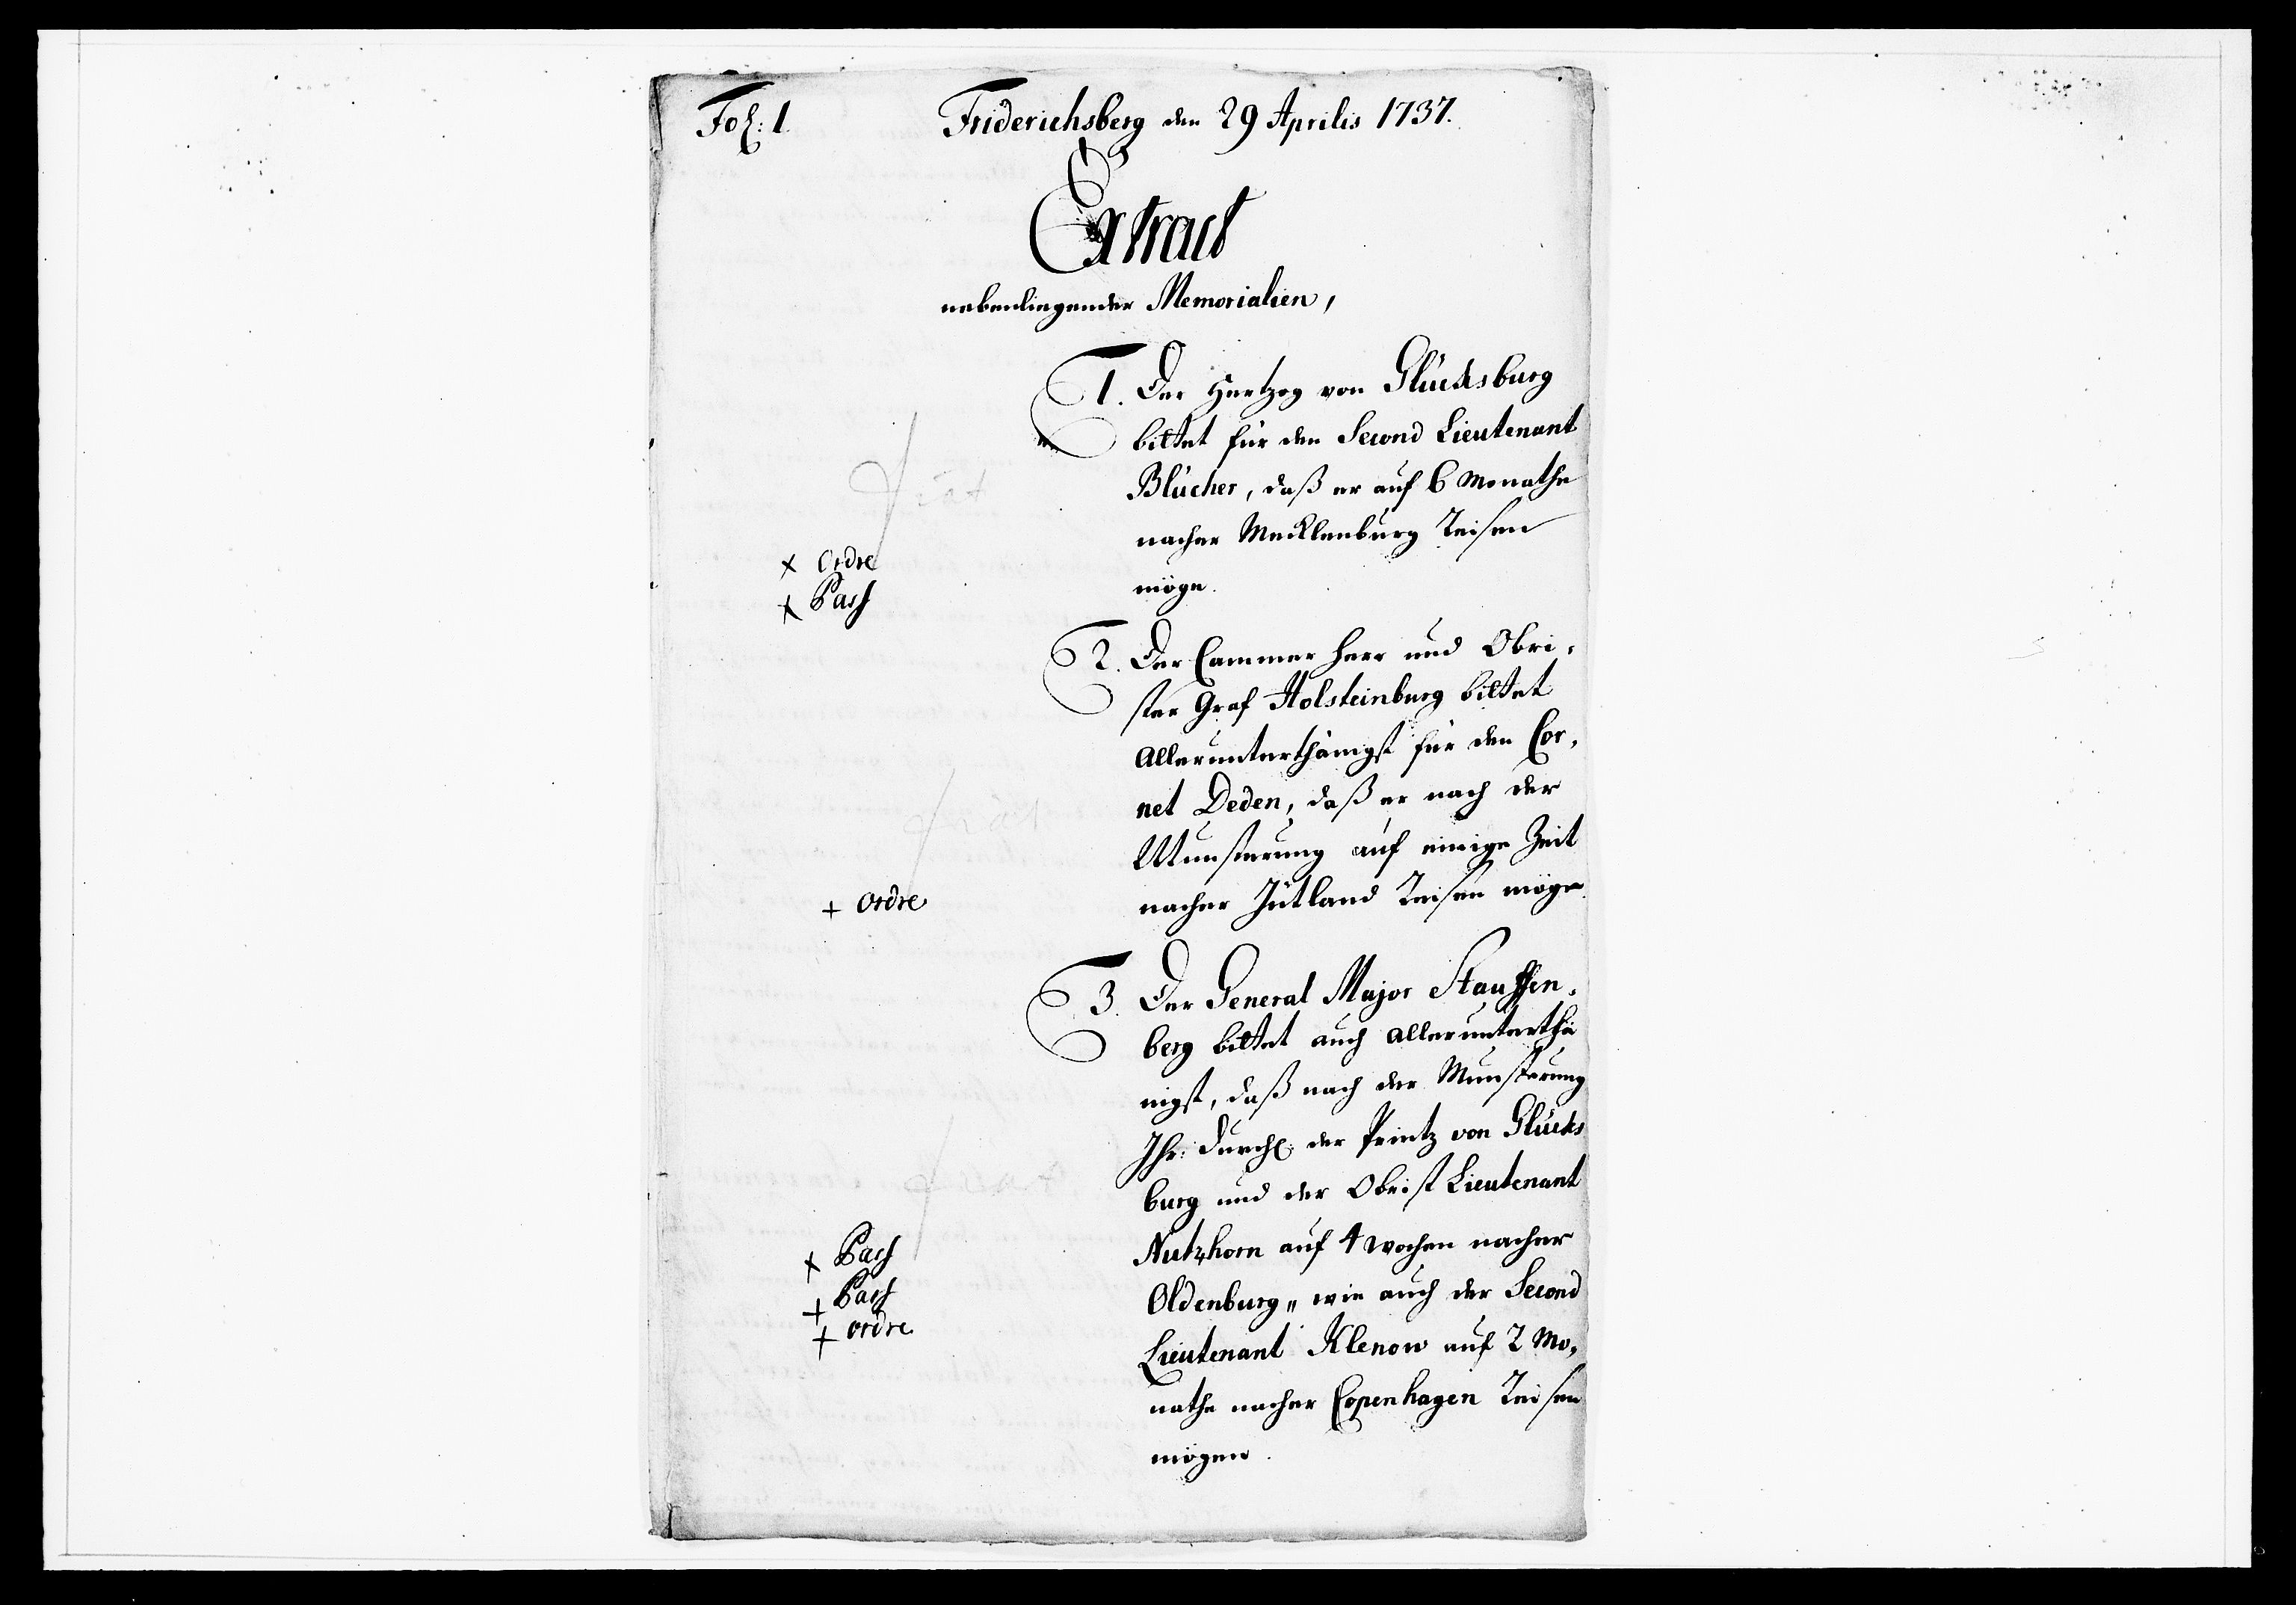 Fol: 1.
Friderichsberg den 29 Aprilis 1737.
Extract
nebenliegender Memorialien,
1. Der Hertzog von Glücksburg
bittet für den Second Lieutenant
Blücher, daß er auf 6 Monathe
nacher Mecklenburg Reisen
möge.
fiat
x Ordre
x Pass
2. Der Cammer Herr und Obri-
ster Graf Holsteinburg bittet
Allerunterthänigst für den Cor-
net Deden, daß er nach der
Munsterung auf einige Zeit
nacher Jütland Reisen möge.
fiat
+ Ordre
3. Der General Major Stauffen-
berg bittet auch Allerunterthä
nigst, daß nach der Munsterung
Ihr: Durchl: der Printz von Glücks
burg und der Obrist Lieutenant
Nutzhorn auf 4 Wochen nacher
Oldenburg, wie auch der Second
Lieutenant Klenow auf 2 Mo-
nathe nacher Copenhagen Reisen
mögen.
x Pass
+ Pass
+ ordre